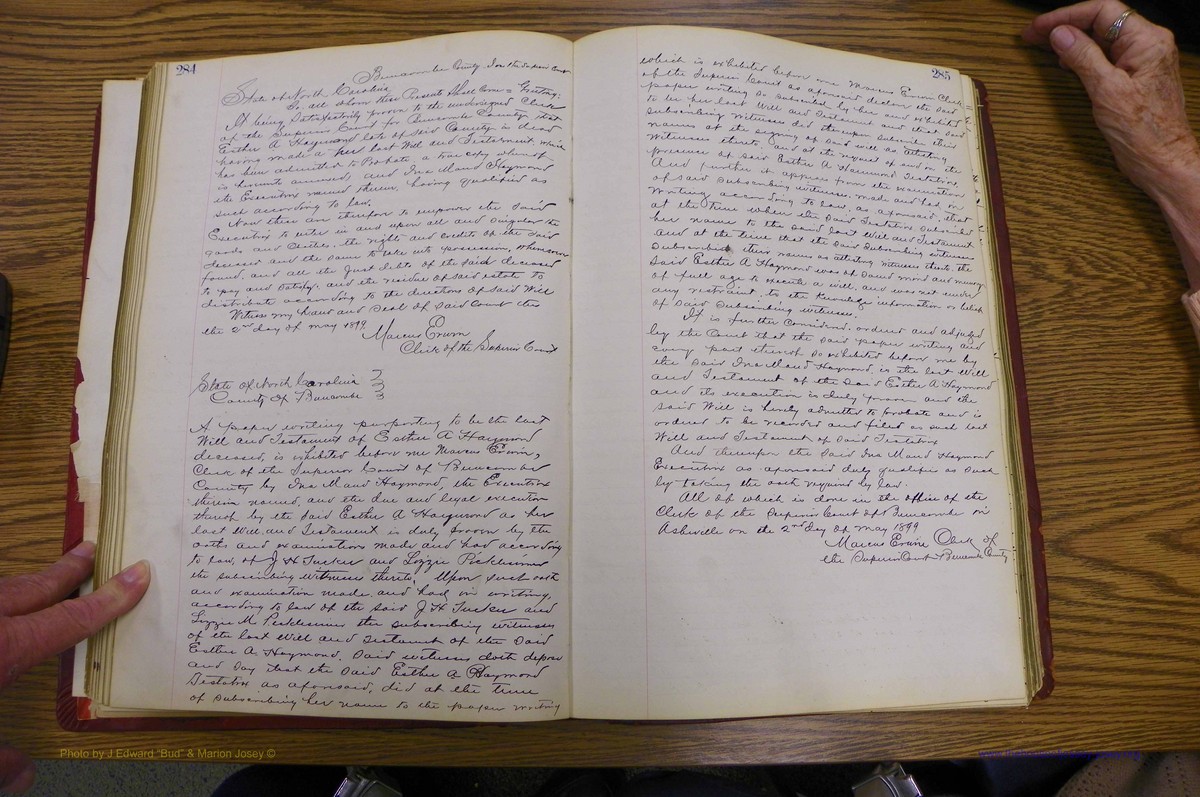 284
Buncombe County, In the Superior Court
State of North Carolina
To all whom these Presents Shall Come = Greeting:
It being Satisfactorily proven to the undersigned Clerk
of the Superior Court for Buncombe County, that
Esther A Haymond late of said County is dead
having made a her last Will and Testament which
has been admitted to Probate a true copy whereof
is herewith annexed, and Ina Maud Haymond
the Executrix named therein, having qualified as
such according to law.
Now these are therefore to empower the said
Executrix to enter in and upon all and singular the
goods and Chattles, the rights and credits of the said
deceased and the same to take into possession, wheresoever
found, and all the just debts of the said deceased
to pay and satisfy, and the residue of said estate to
distribute according to the directions of said Will
Witness my hand and Seal of said Court this
the 2nd day of May 1899.
Marcus Erwin
Clerk of the Superior Court
State of North Carolina
County of Buncombe
A paper writing purporting to be the last
Will and Testament of Esther A Haymond
deceased, is exhibited before me Marcus Erwin,
Clerk of the Superior Court of Buncombe
County by Ina Maud Haymond, the Executrix
therein named, and the due and legal execution
thereof by the said Esther A Haymond as her
last Will and Testament is duly proven by the
oath and examinations made and had according
to law, of J H Tucker and Lizzie Picklesimer
the subscribing witnesses thereto. Upon such oath
and examination made and had in writing,
according to law of the said J H Tucker and
Lizzie M. Picklesimer the subscribing witnesses
of the last Will and Testament of the said
Esther A. Haymond. Said witnesses doth depose
and say that the said Esther A Haymond
Testatrix as aforesaid, did at the time
of subscribing her name to the paper writing
285
which is exhibited before me Marcus Erwin Clerk
of the Superior Court as aforesaid declare the said
paper writing so subscribed by her and exhibited
to be her last Will and Testament and that said
subscribing witnesses did thereupon subscribe their
names at the signing of said will as attesting
witnesses thereto, and at the request of and in the
presence of said Esther A. Haymond Testatrix.
And further it appears from the examination
of said subscribing witnesses made and had in
writing according to law, as aforesaid, that
at the time when the said Testatrix subscribed
her name to the said last Will and Testament
and at the time that the said subscribing witnesses
subscribed their names as attesting witnesses thereto the
said Esther A Haymond was of sound mind and memory
of full age to execute a will, and was not under
any restraint to the knowledge information or belief
of said subscribing witnesses.
It is further Considered ordered and adjudged
by the Court that the said paper writing and
every part thereof so exhibited before me by
the said Ina Maud Haymond is the last Will
and Testament of the said Esther A. Haymond
and its execution is duly proven and the
said Will is hereby admitted to probate and is
ordered to be recorded and filed as such last
Will and Testament of said Testatrix
And thereupon the said Ina Maud Haymond
Executrix as aforesaid duly qualifies as such
by taking the oath required by law.
All of which is done in the office of the
Clerk of the Superior Court of Buncombe in
Asheville on the 2nd day of May 1899
Marcus Erwin Clerk of
the Superior Court of Buncombe County
Photo by J Edward "Bud" & Marion Josey ©